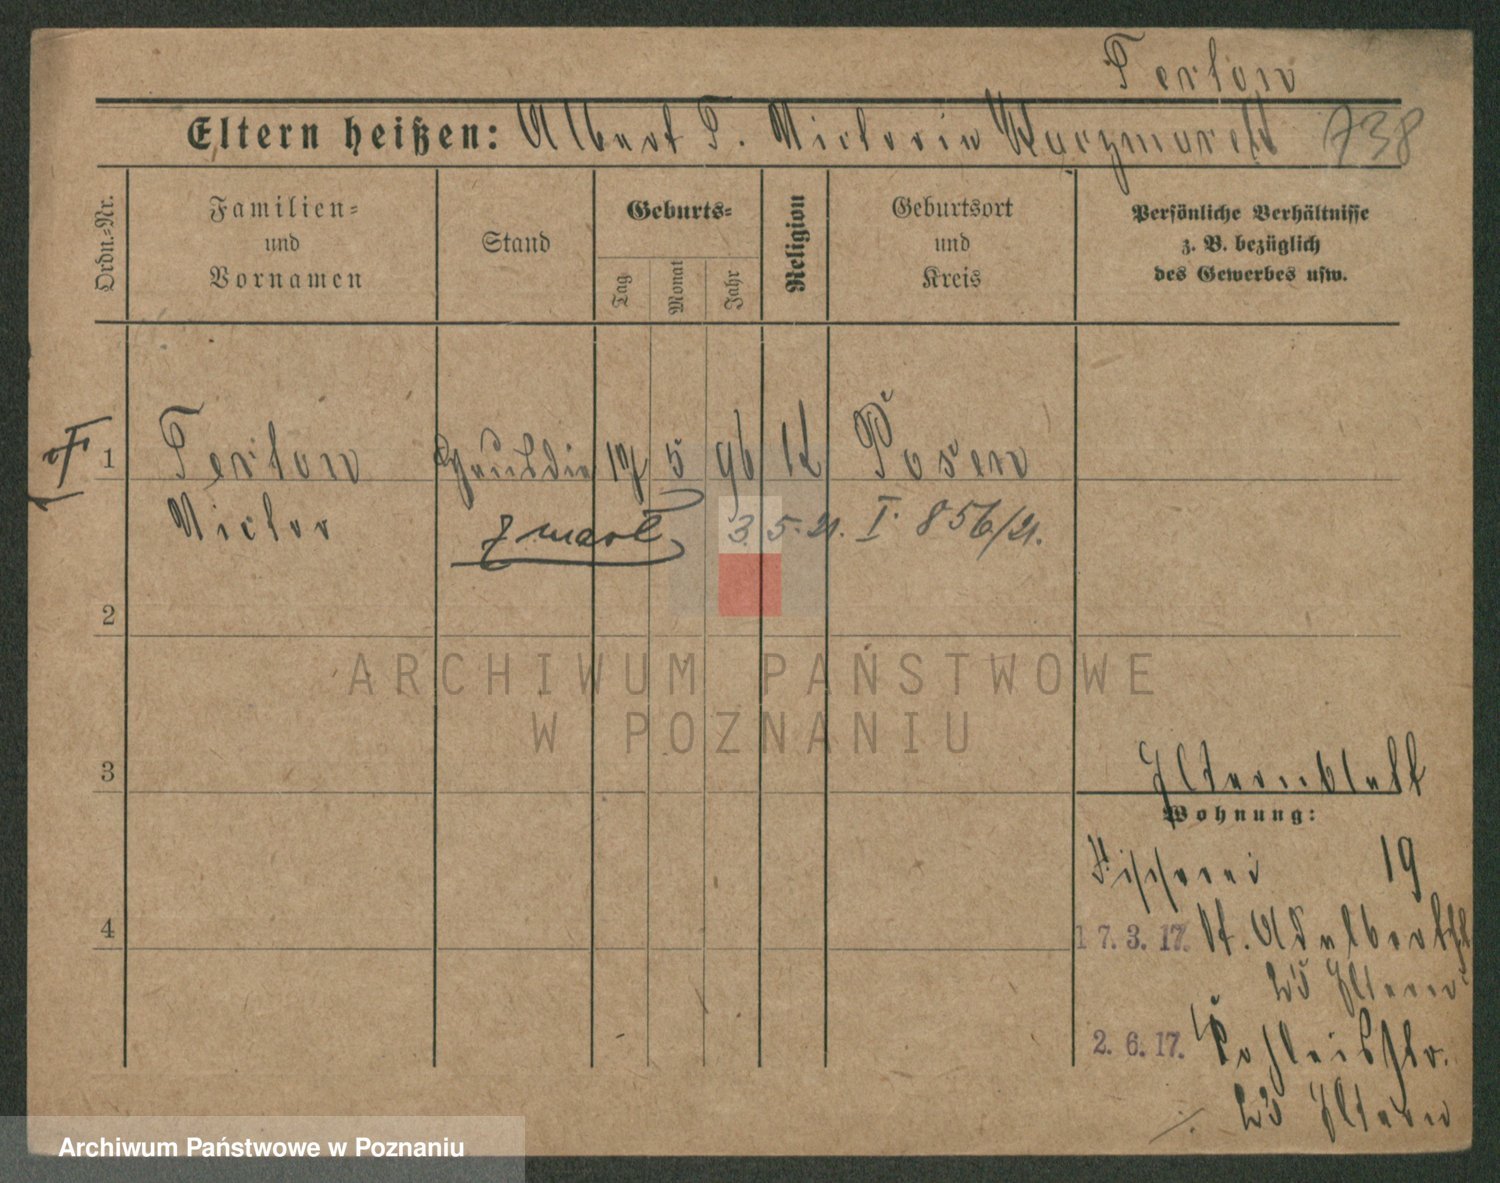 Ferton
Eltern heißen: Albert F. Victoria Kaczmarek 738
Ordn.-Nr.
Familien-
und
Vornamen
Stand
Geburts-
Tag
Monat
Jahr
Religion
Geburtsort
und
Kreis
Persönliche Verhältnisse
z. B. bezüglich
des Gewerbes usw.
1
17 5 96 K Posen
Victor
3. 5. 21. I. 856/21.
2
3
Elternblatt
Wohnung:
Fischerei 19
4
17. 3. 17. St. Adalbertstr
23 Eltern
2. 6. 17.
23 Eltern
ARCHIWUM PAŃSTWOWE
W POZNANIU
Archiwum Państwowe w Poznaniu